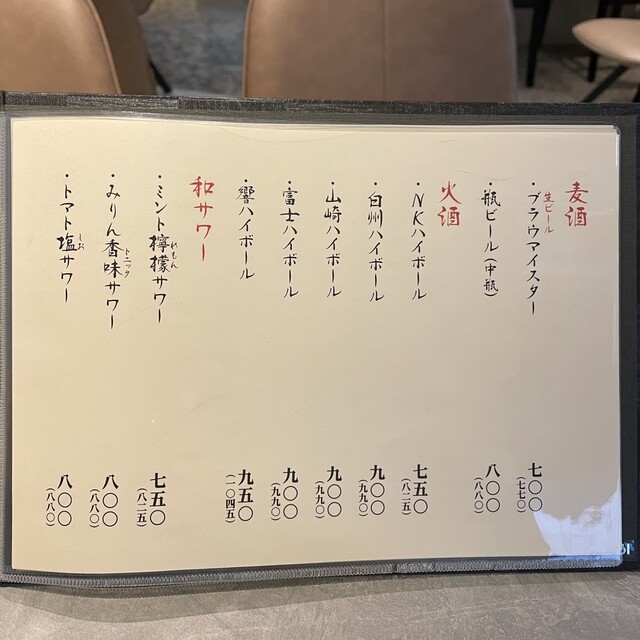 麦酒
生ビール
・ブラウマイスター 七〇〇(七七〇)
・瓶ビール(中瓶) 八〇〇(八八〇)
火酒
・NKハイボール 七五〇(八二五)
・白州ハイボール 九〇〇(九九〇)
・山崎ハイボール 九〇〇(九九〇)
・富士ハイボール 九〇〇(九九〇)
・響ハイボール 九五〇(一〇四五)
和サワー
・ミント檸檬サワー 七五〇(八二五)
れもん
・みりん香味サワー 八〇〇(八八〇)
トニック
・トマト塩サワー 八〇〇(八八〇)
しお